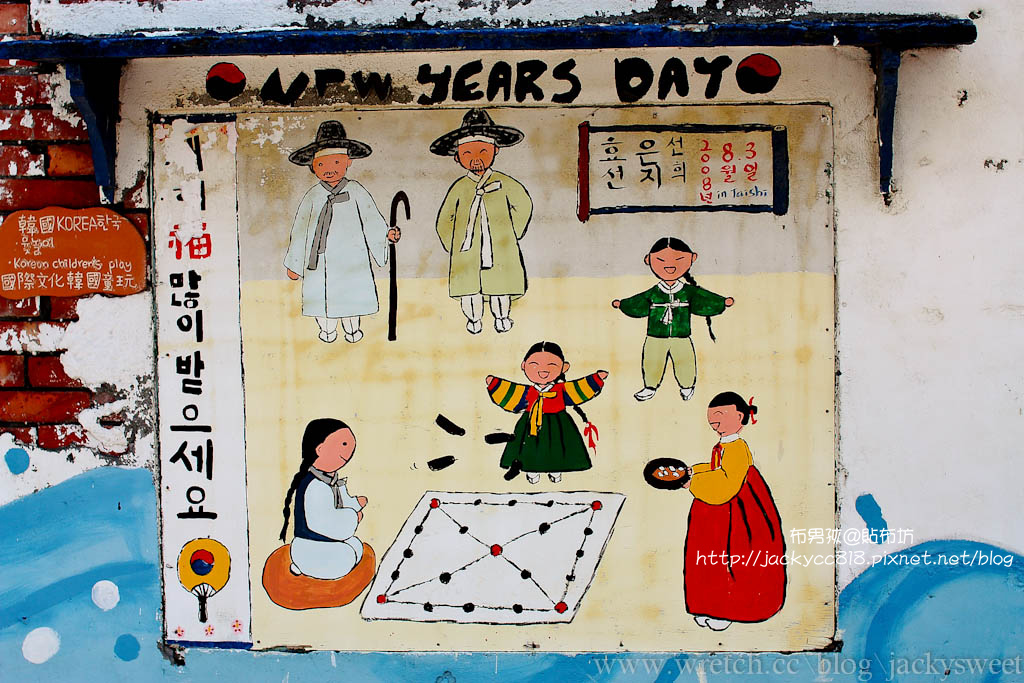 NEW YEARS DAY
福 많이 받으세요
효은선
선지희
2008년
8월
3일
in Taishi
韓國KOREA한국
Korean children's play
國際文化韓國童玩
布男孩@貼布坊
http://jackycc818.pixnet.net/blog
www.wretch.cc\blog\jackysweet